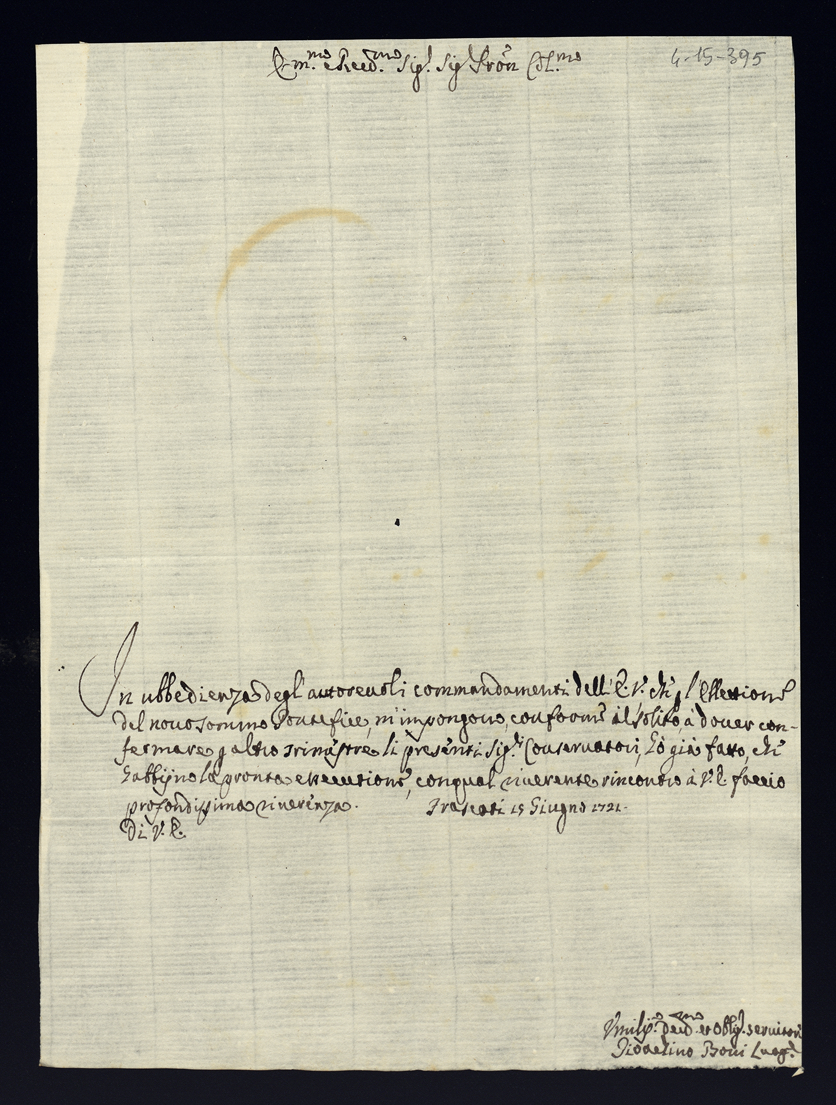 E.mo e Reud.mo Sig.r Sig.r Pron Col.mo
4-15-395
In ubbedienza degl'autoreuoli commandamenti dell'E.V. che p l'Elletione
del nouo sommo Pontefice, m'impongono, conforme il solito, à douer con-
fermare p altro trimestre li presenti Sig.ri Conseruatori, hò già fatto, che
habbino la pronta essecutione, con qual riuerente rincontro à V.E. faccio
profondissima riuerenza. Frascati 15 Giugno 1721.
Di V.E.
Vmiliss.o deuo.mo et Obblig. seruitore
Boni Luog.